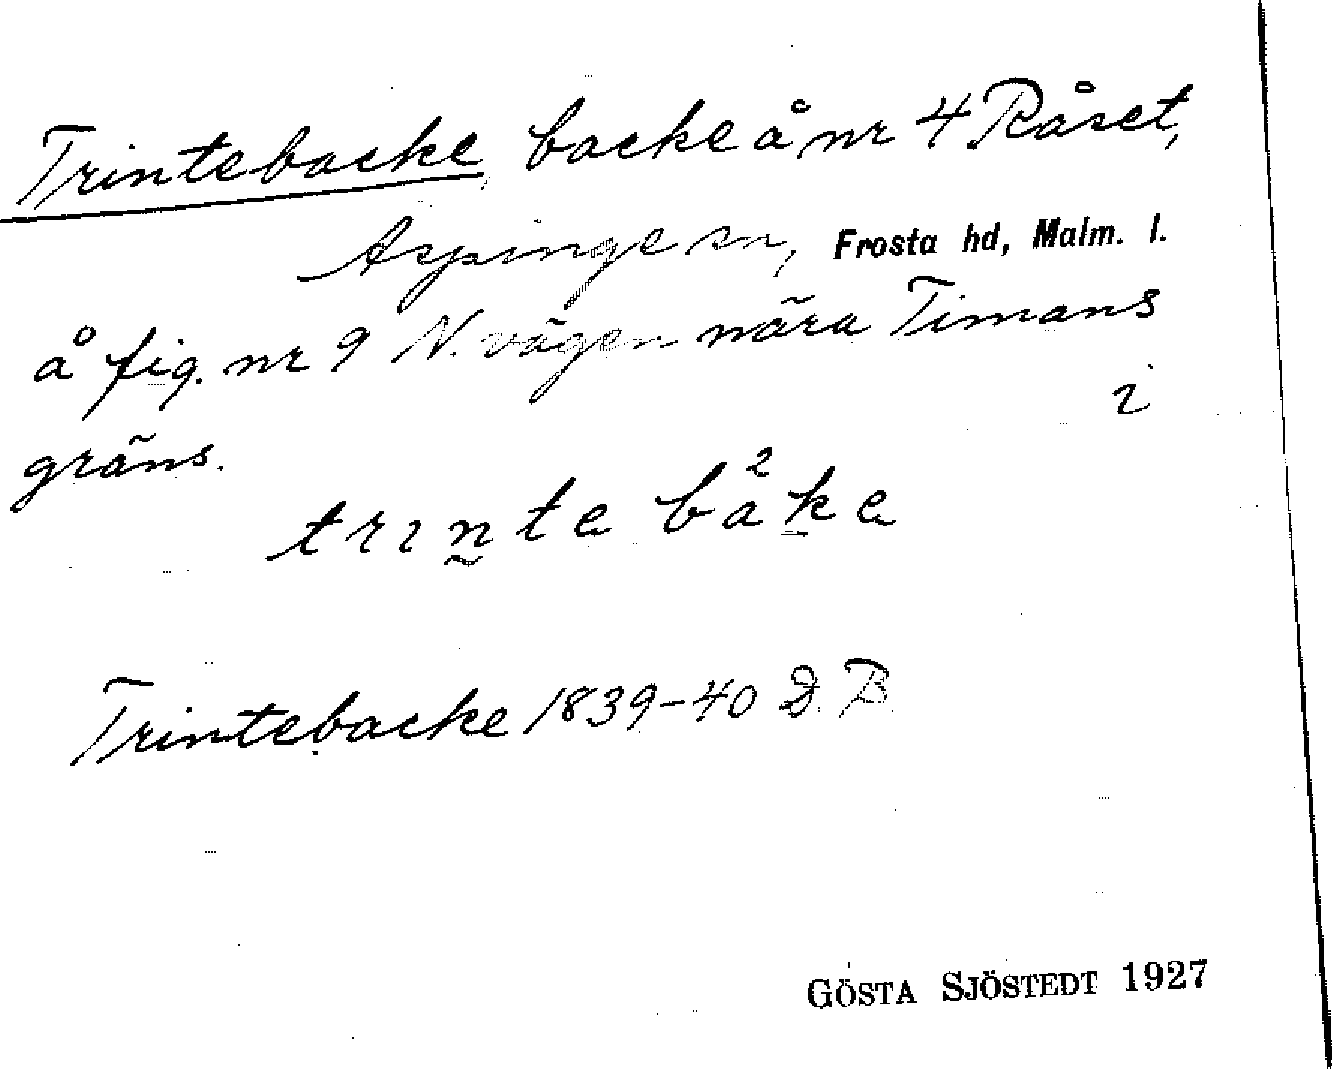 Trintebacke, backe å nr 4 Råset,
Aspinge sn, Frosta hd, Malm. l.
å fig. nr 9 N. vägen nära Timans
i
gräns.
trinte båke
2
Trintebacke 1839-40 D. B.
GÖSTA SJÖSTEDT 1927